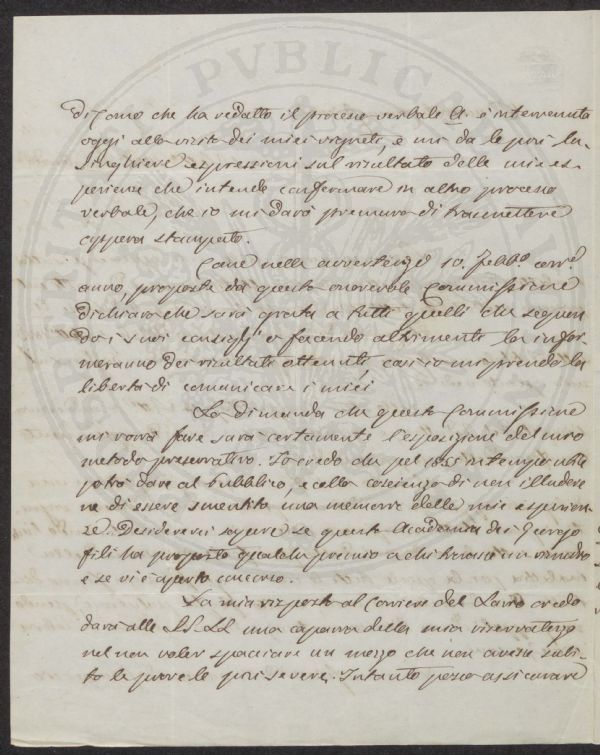 di Como che ha redatto il processo verbale A. è intervenuta
oggi alla visita dei miei vigneti, e mi da le più lu-
singhiere espressioni sul risultato delle mie es-
perienze che intende confermare in altro processo
verbale, che io mi darò premura di trasmettere
appena stampato.
Come nelle avvertenze 10. Febb.o corr.e
anno, proposte da questa onorevole Commissione
dichiara che sarà grata a tutti quelli che seguen
do i suoi consigli o facendo altrimenti la infor-
meranno dei risultati ottenuti, così io mi prendo la
libertà di comunicare i miei
La dimanda che questa Commissione
mi vorrà fare sarà certamente l'esposizione del mio
metodo preservativo. Io credo che pel 1855 in tempo utile
potrò dare al Pubblico, e colla coscienza di non illudere
ne di essere smentito una memoria delle mie esperien
ze. Desidererei sapere se questa Accademia dei Georgo
fili ha proposto qualche premio a chi trovasse un rimedio
e se vi è aperto concorso.
La mia risposta al Corriere del Lario credo
darà alle LL. LL. una caparra della mia riservatezza
nel non voler spacciare un mezzo che non avesse subi-
to le prove le più severe. Intanto posso assicurare